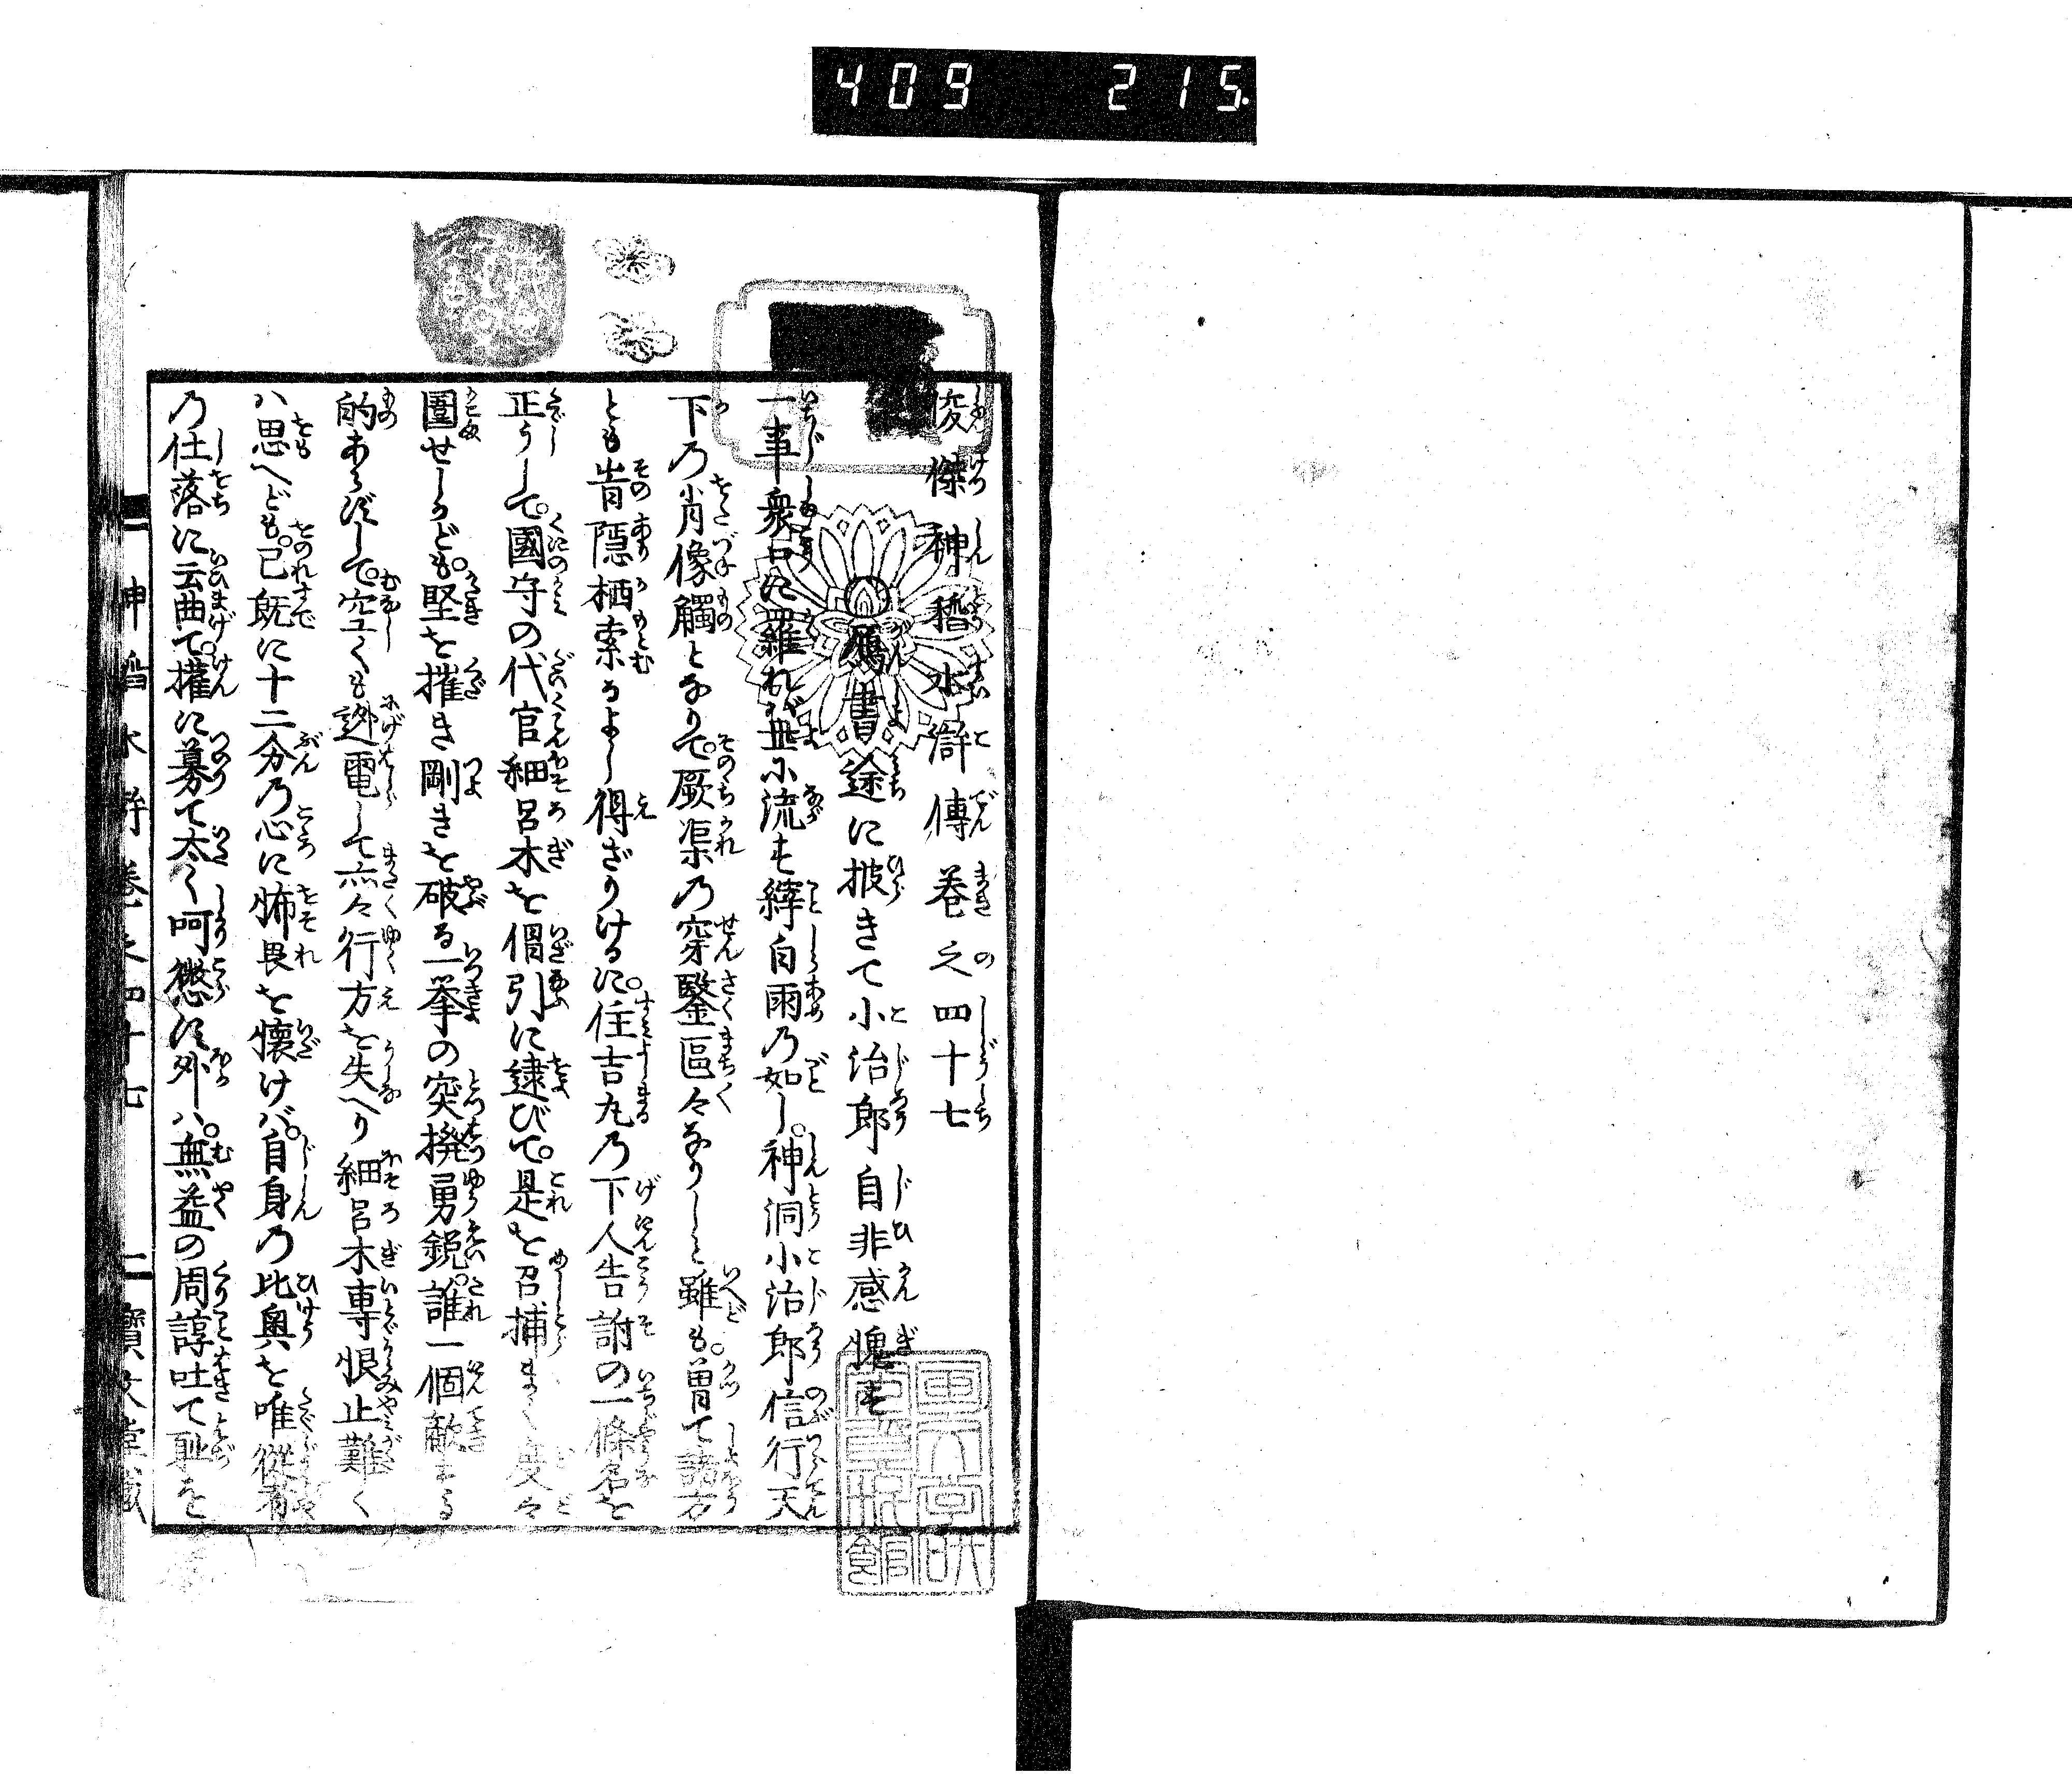 409 215
俊傑神稻水滸傳巻之四十七
鴈書途に披きて小治郎自非感愧す
一事衆口に羅れバ世に流す繹白雨の如し。神洞小治郎信行天
下の肖像觸となりて。厥渠の穿鑿區々なりしと雖も。曽て諸方
とも峕隠栖索るよし得ざりける に。住吉丸の下人告訴の一條名を
正うして。國守の代官細呂木を倡引に逮びて。是を召捕まく度々
圍せしかども。堅を摧き剛きを破る一挙の突撥勇鋭。誰一個敵する
的あらずして。空くも迯電して亦々行方を失へり細呂木専恨止難く
ハ思へども。己既に十二分の心に怖畏を懐けバ。自身の比興を唯從者
の仕落に云曲て。權に募て太く呵懲に外ハ。無益の周諄吐て耻を
神稻水滸巻之四十七 一 寳文堂藏